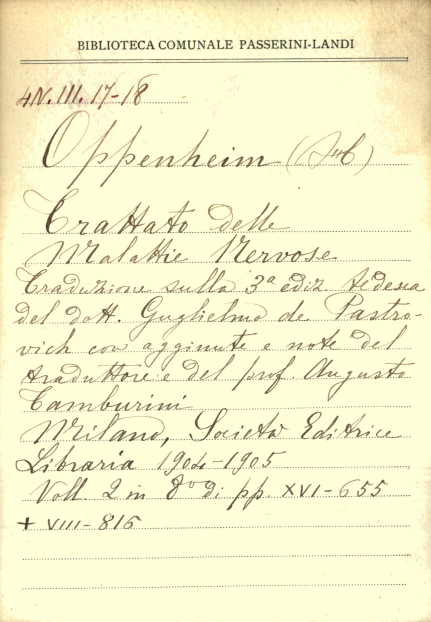 BIBLIOTECA COMUNALE PASSERINI-LANDI
4N.III.17-18
Oppenheim
Trattato delle
Malattie Nervose
Traduzione sulla 3ª ediz. tedesca
del dott. Guglielmo de Pastro-
vich con aggiunte e note del
traduttore e del prof Augusto
Tamburini
Milano, Società Editrice
Libraria 1904-1905
Voll. 2 in 8º di pp. XVI-655
+ VIII-816